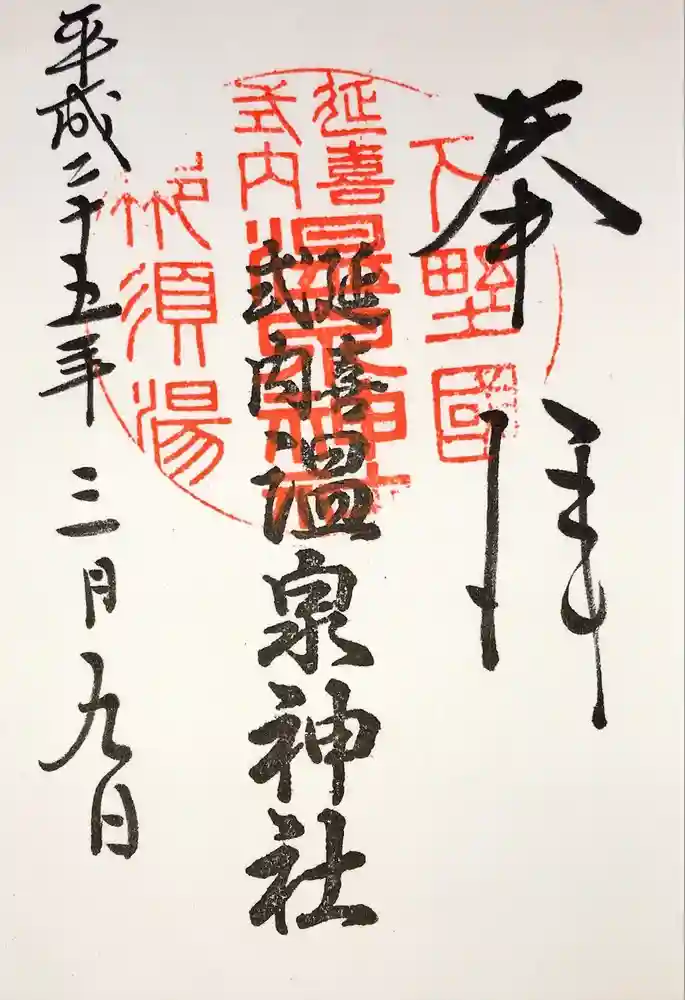 奉拝
下野國
延喜
式内
温泉神社
延喜
式内
温泉神社
那須湯
平成二十五年三月九日